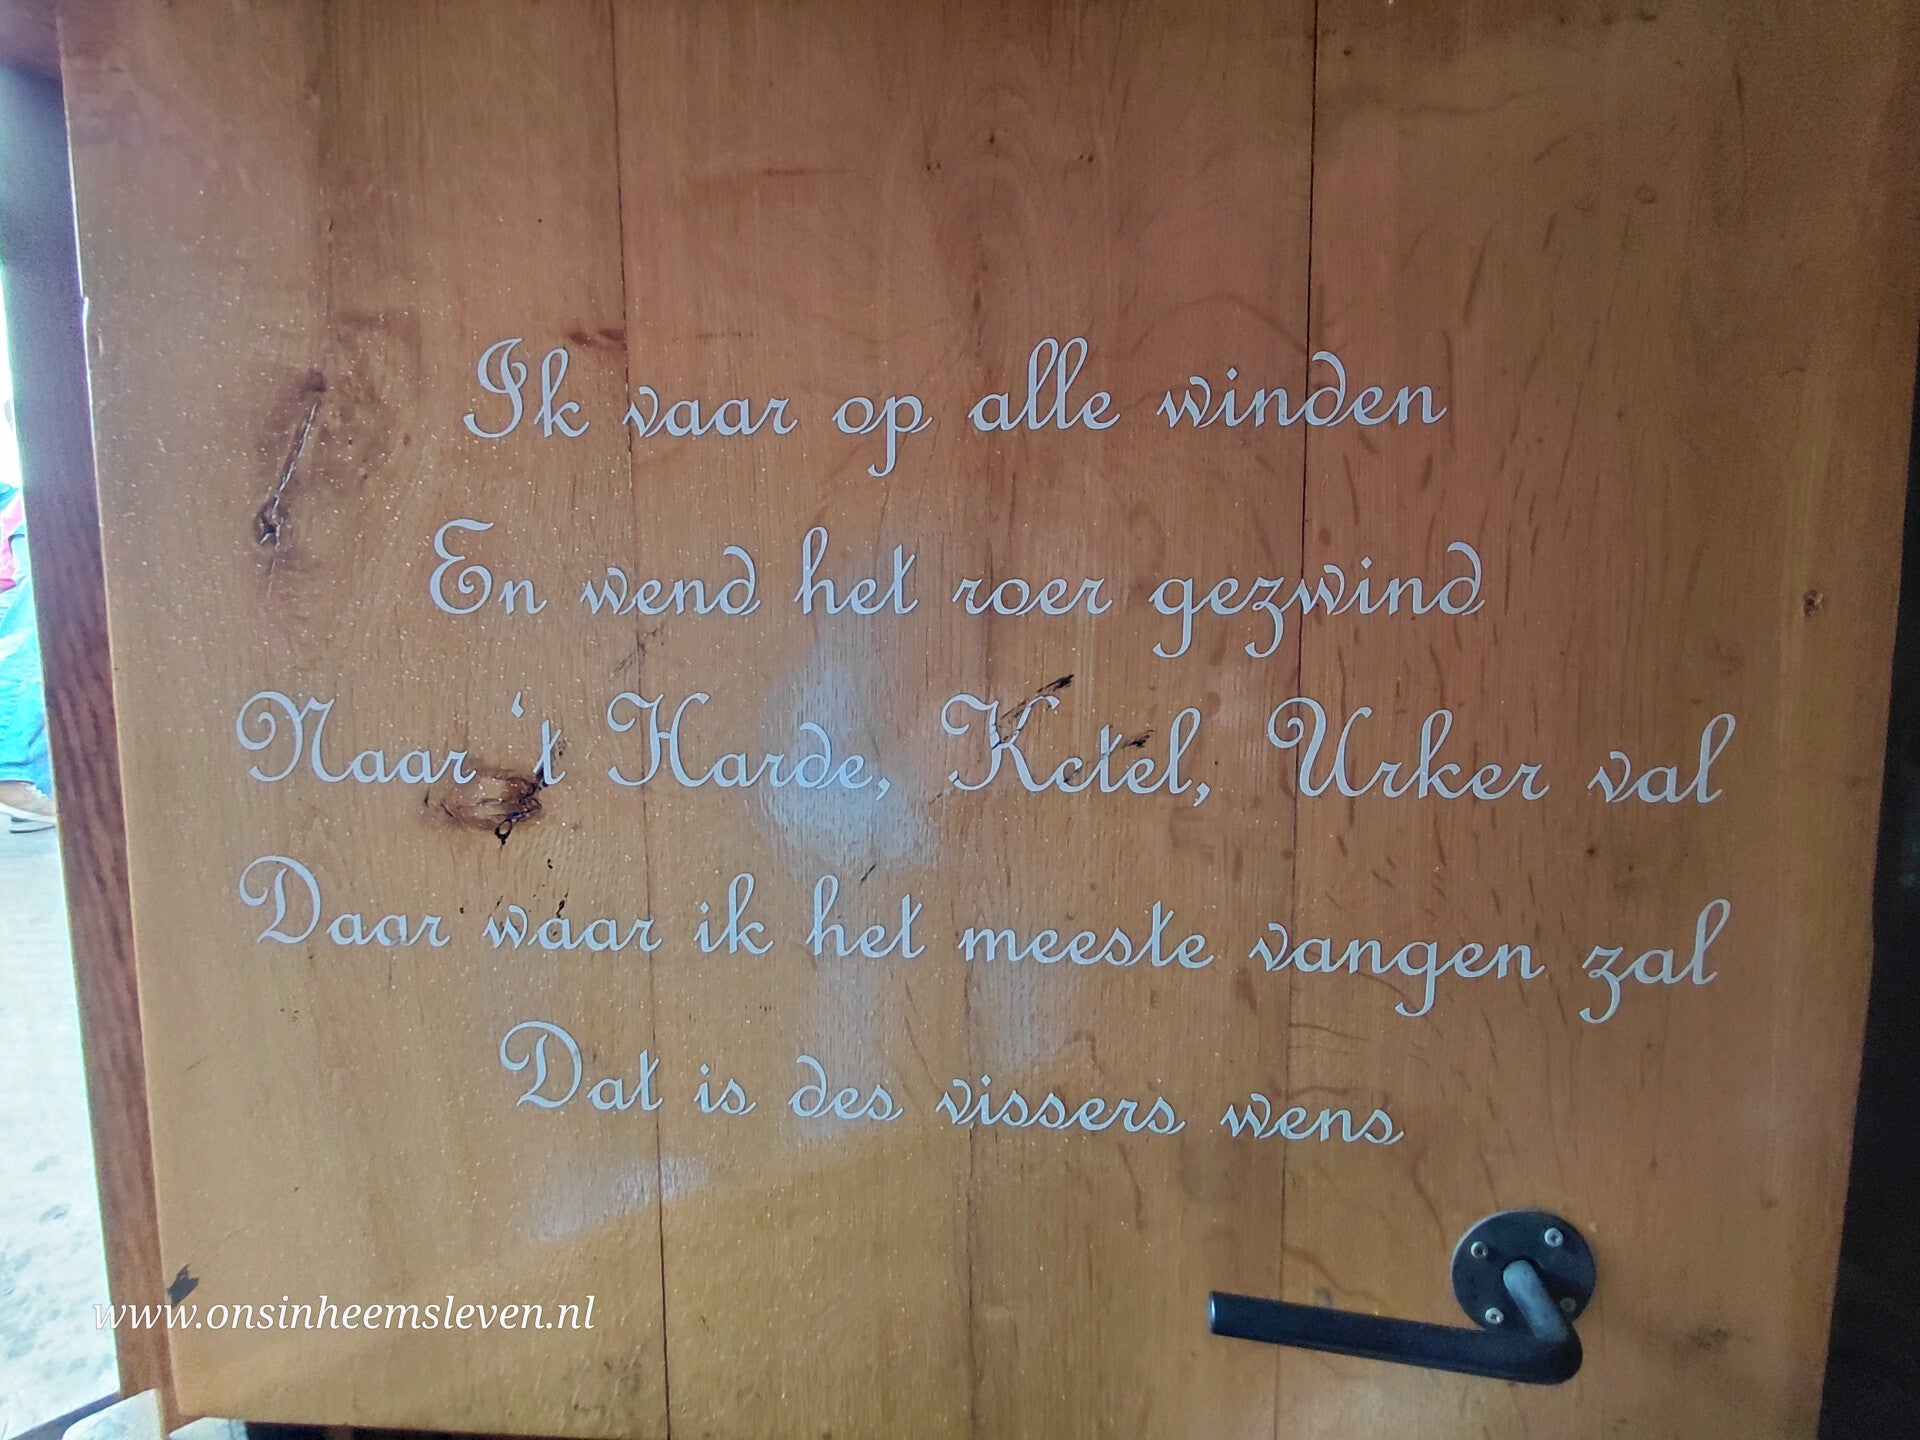 Ik vaar op alle winden
En wend het roer gezwind
Naar 't Harde, Ketel, Urker val
Daar waar ik het meeste vangen zal
Dat is des vissers wens
www.onsinheemsleven.nl